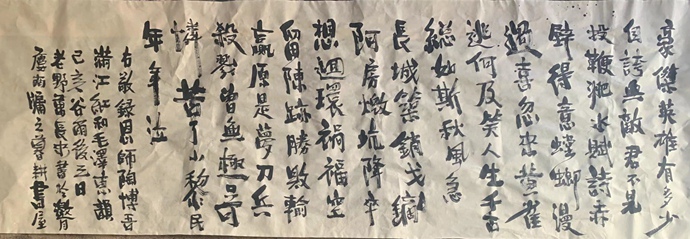 豪傑英雄有多少
自誇無敵君不見
投鞭淝水賦詩赤
壁得意螳螂漫
過喜忽黃雀
逃何及笑人生千古
總如斯秋風急
長城築銷戈鏑
阿房燬坑降卒
想迴環禍福空
留陳跡勝敗輸
贏原是夢刀兵
殺戮皆無趣只可
憐苦了小黎民
年年泣
右敬録恩師陶博吾
滿江紅和毛澤東韻
己亥谷雨後三日
老野書於贛
南牖之耕書屋